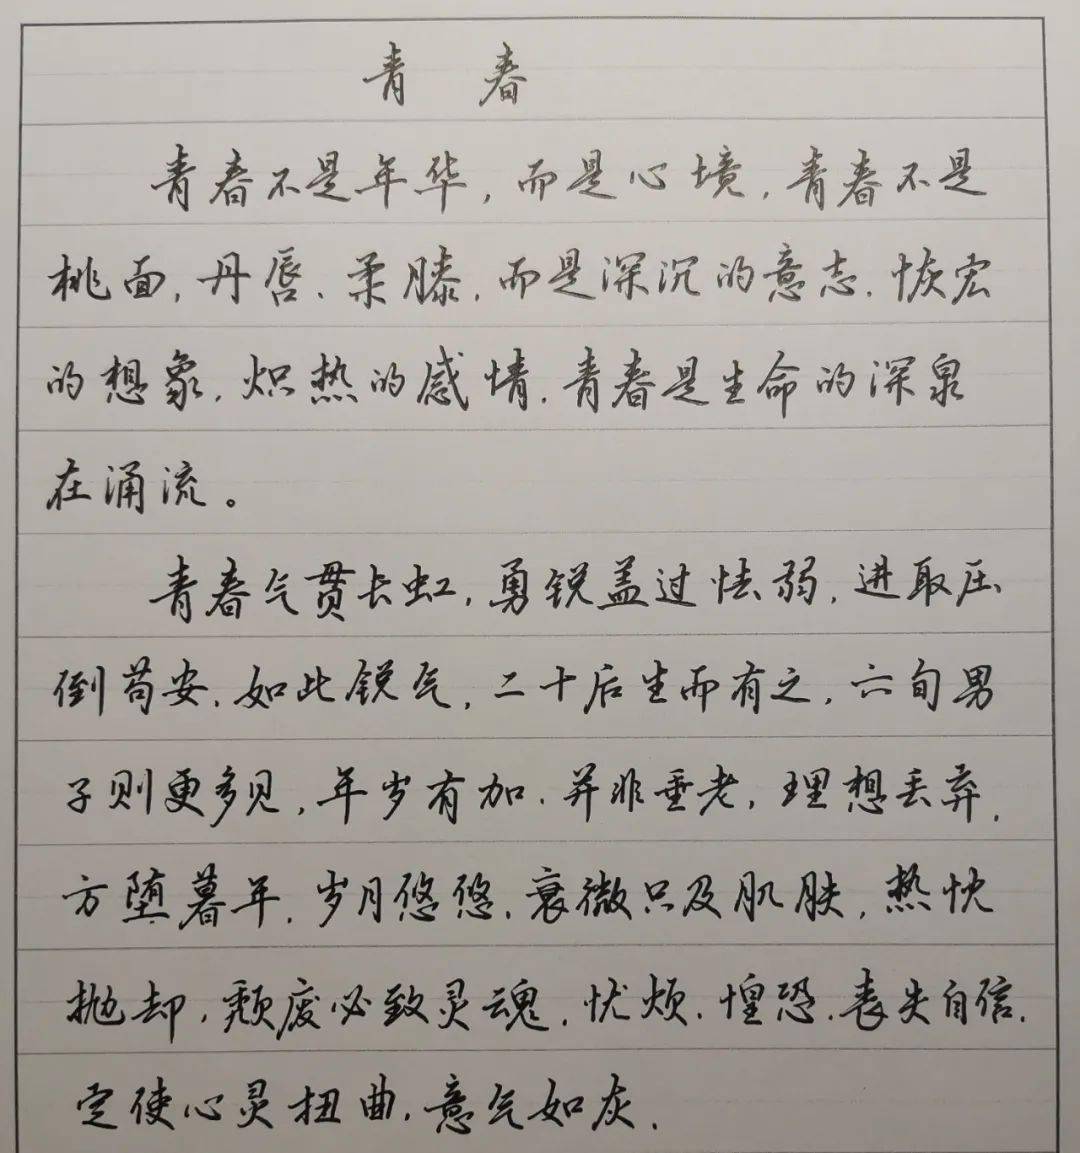 青春
青春不是年华,而是心境,青春不是
桃面,丹唇,柔膝,而是深沉的意志,恢宏
的想象,炽热的感情,青春是生命的深泉
在涌流。
青春气贯长虹,勇锐盖过怯弱,进取压
倒苟安,如此锐气,二十后生而有之,六旬男
子则更多见,年岁有加,并非垂老,理想丢弃,
方堕暮年,岁月悠悠,衰微只及肌肤,热忱
抛却,颓废必致灵魂,忧烦,惶恐,丧失自信,
定使心灵扭曲,意气如灰.